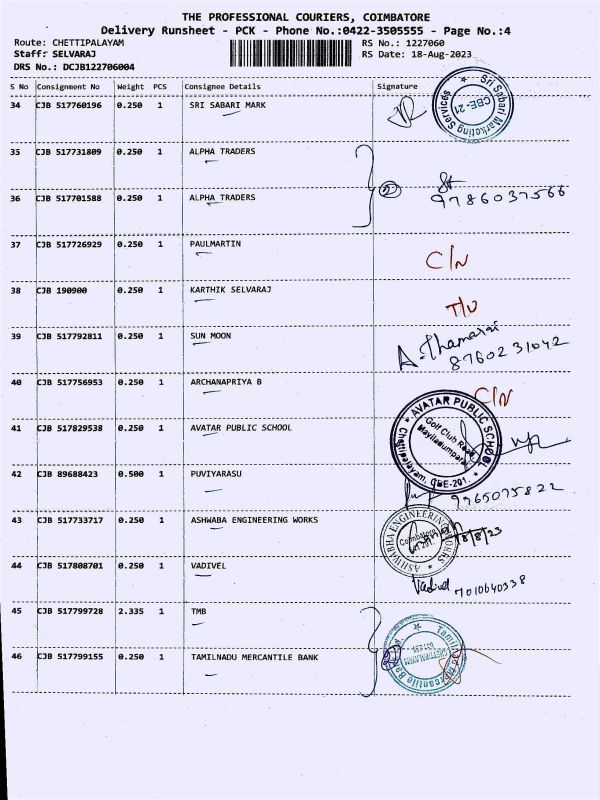 THE PROFESSIONAL COURIERS, COIMBATORE
Delivery Runsheet - PCK - Phone No.:0422-3505555 - Page No.:4
Route: CHETTIPALAYAM
RS No.: 1227060
Staff: SELVARAJ
RS Date: 18-Aug-2023
DRS No.: DCJB122706004
S No Consignment No Weight PCS Consignee Details Signature
34 CJB 517760196 0.250 1 SRI SABARI MARK
Sri Sabari Marketing Services
CBE-21
35 CJB 517731809 0.250 1 ALPHA TRADERS
36 CJB 517701588 0.250 1 ALPHA TRADERS
2
9786037566
37 CJB 517726929 0.250 1 PAULMARTIN
C/N
38 CJB 190900 0.250 1 KARTHIK SELVARAJ
T/U
39 CJB 517792811 0.250 1 SUN MOON
A.Thamarai
8760231042
40 CJB 517756953 0.250 1 ARCHANAPRIYA B
C/N
41 CJB 517829538 0.250 1 AVATAR PUBLIC SCHOOL
AVATAR PUBLIC SCHOOL
Golf Club Road,
Chettipalayam, CBE-201.
42 CJB 89688423 0.500 1 PUVIYARASU
9965075822
43 CJB 517733717 0.250 1 ASHWABA ENGINEERING WORKS
ASHWABHA ENGINEERING WORKS
Coimbatore
18/8/23
44 CJB 517808701 0.250 1 VADIVEL
Vadivel 7010640338
45 CJB 517799728 2.335 1 TMB
46 CJB 517799155 0.250 1 TAMILNADU MERCANTILE BANK
2
Tamilnad Mercantile Bank